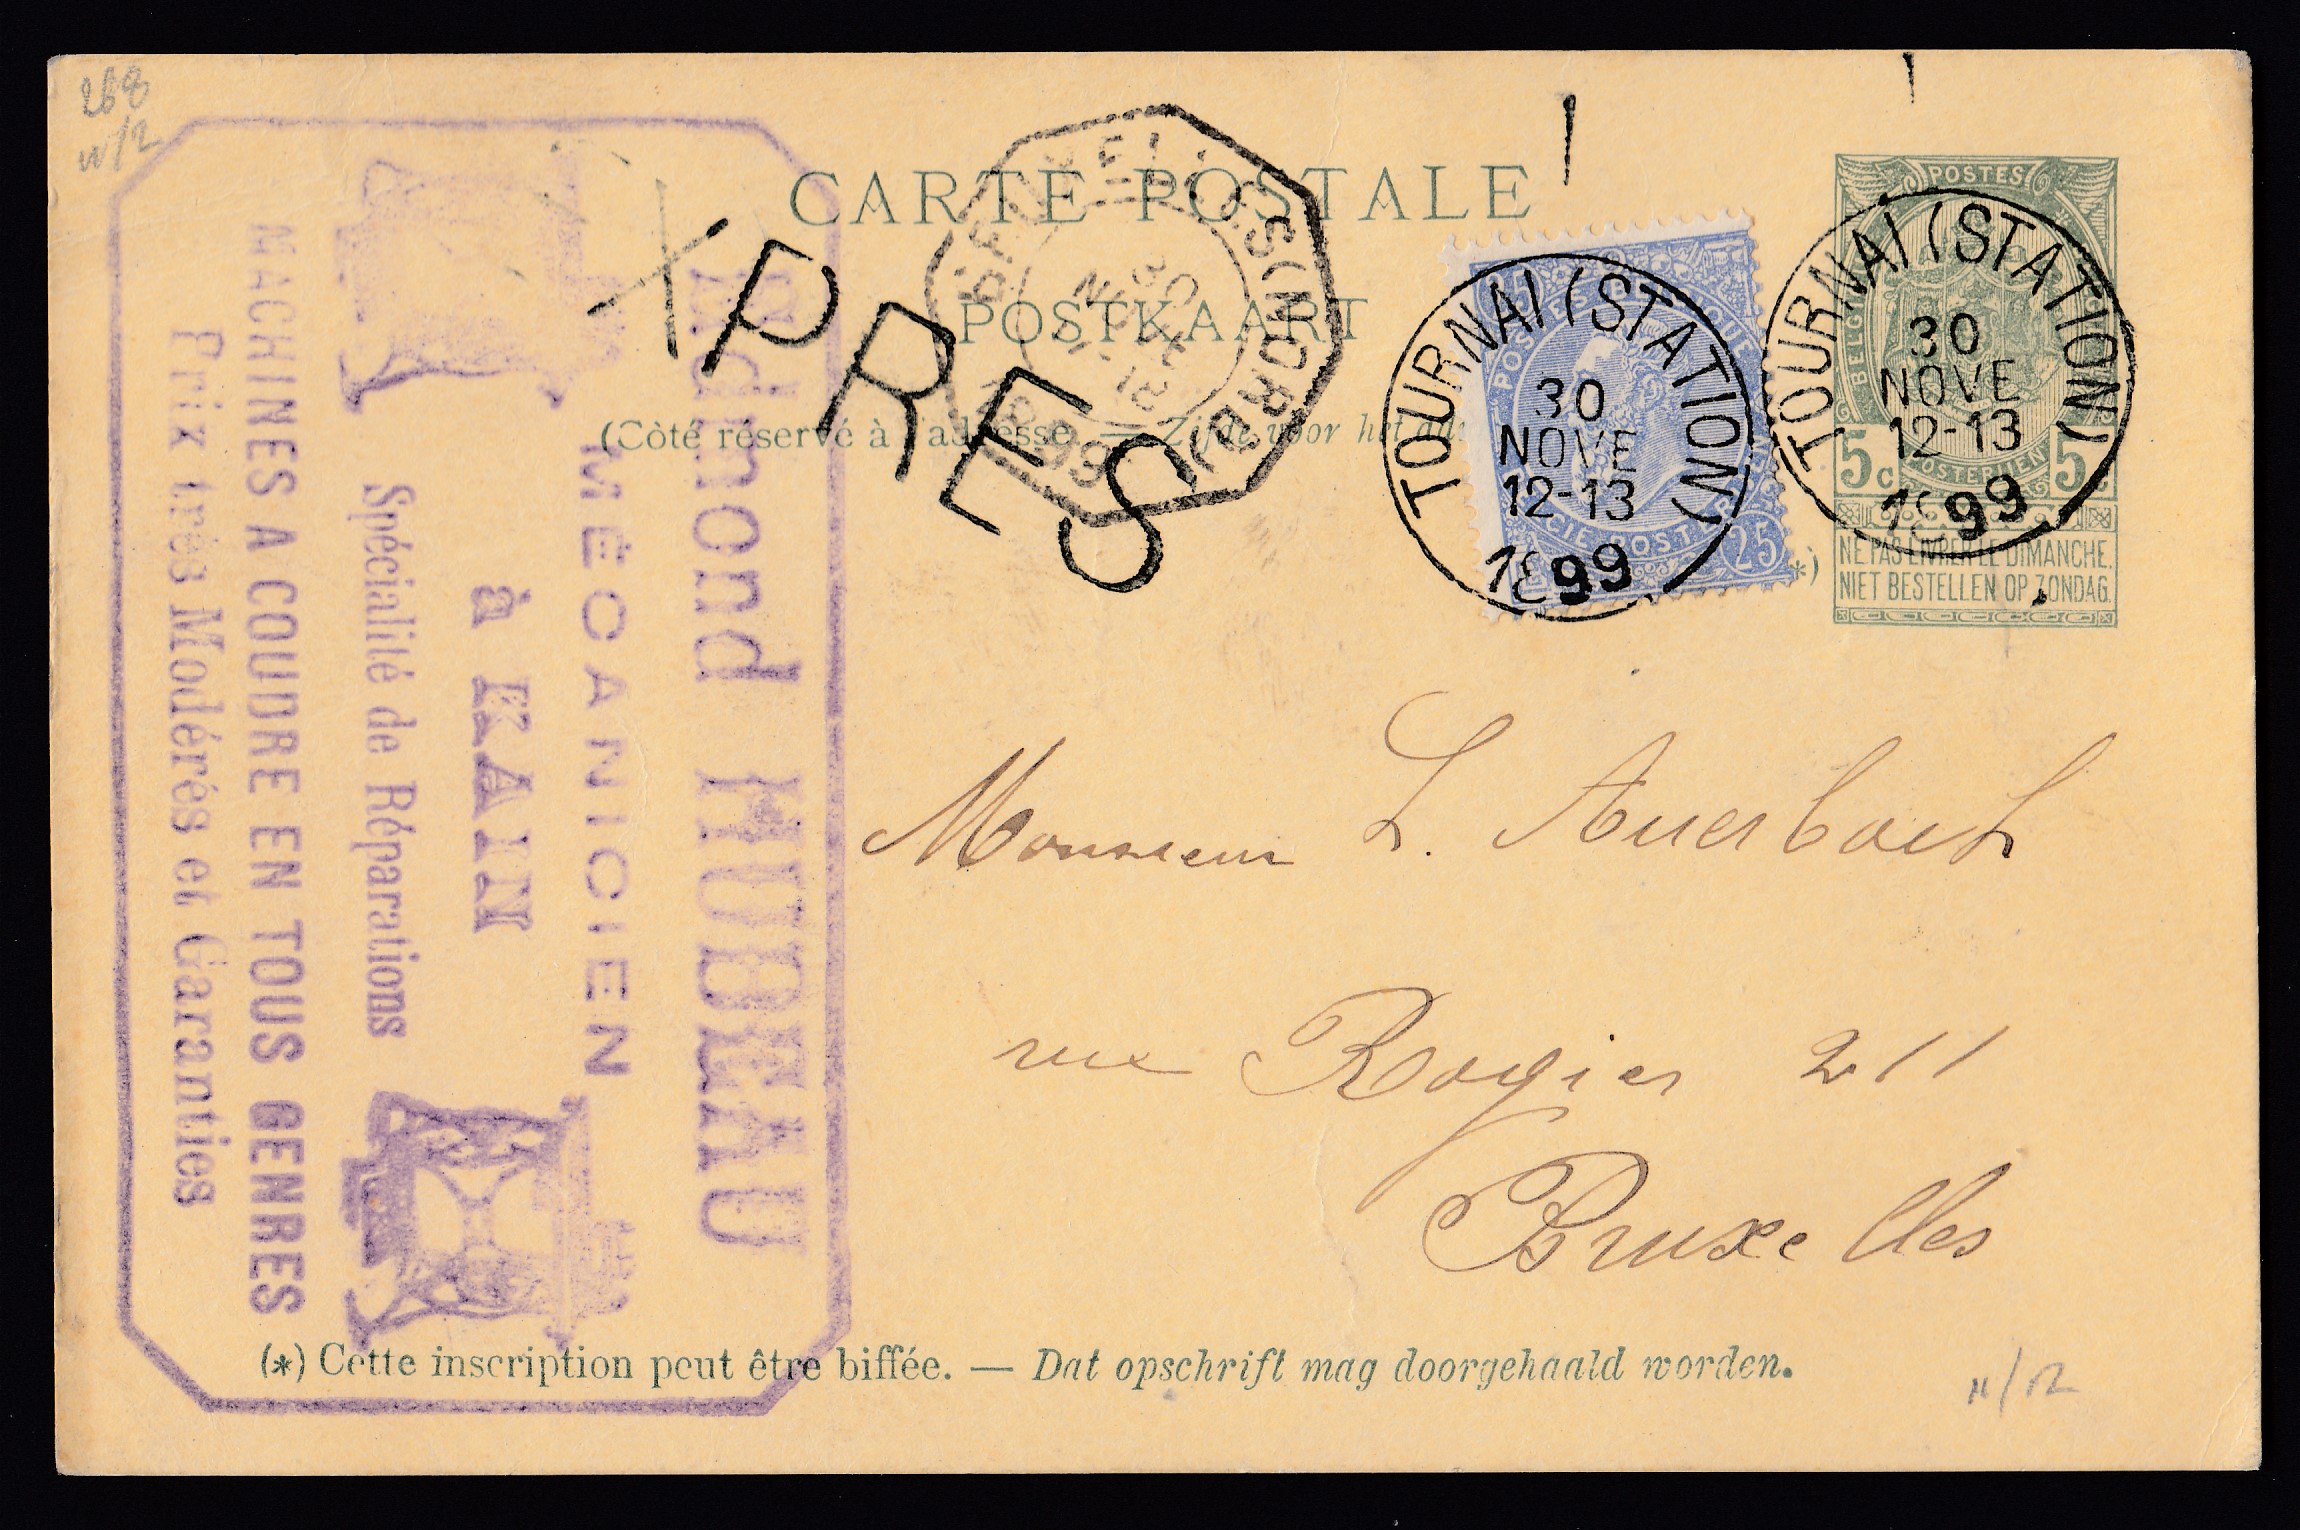 268
n/2
CARTE POSTALE
POSTKAART
(Côté réservé à l'adresse. — Zijde voor het
XPRES
BRUXELLES (NORD)
30
NOVE
12
1899
TOURNAI (STATION)
30
NOVE
12-13
1899
25
TOURNAI (STATION)
30
NOVE
12-13
1899
POSTES
BELGI
5c 5c
POSTERIJEN
*)
NE PAS LIVRER LE DIMANCHE.
NIET BESTELLEN OP ZONDAG.
Edmond HUBEAU
MÉCANICIEN
à KAIN
Spécialité de Réparations
MACHINES A COUDRE EN TOUS GENRES
Prix très Modérés et Garanties
Monsieur L. Auerbach
rue Rogier 211
Bruxelles
(*) Cette inscription peut être biffée. — Dat opschrift mag doorgehaald worden.
n/12